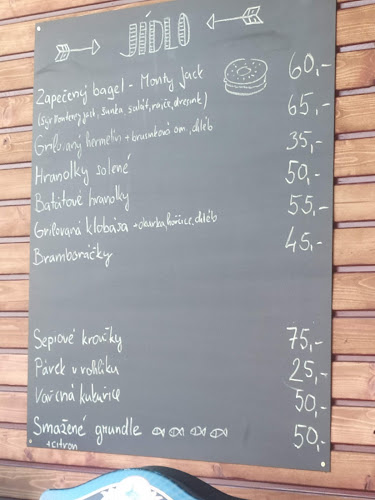 JÍDLO
Zapečený bagel - Monty Jack 60,-
(sýr Monterey jack, šunka, salát, rajče, dresink)
Grilovaný hermelín + brusinková om., chléb 65,-
Hranolky solené 35,-
Batátové hranolky 50,-
Grilovaná klobása + okurka, hořčice, chléb 55,-
Bramboráčky 45,-
Sépiové kroužky 75,-
Párek v rohlíku 25,-
Vařená kukuřice 50,-
Smažené grundle 50,-
+ citron